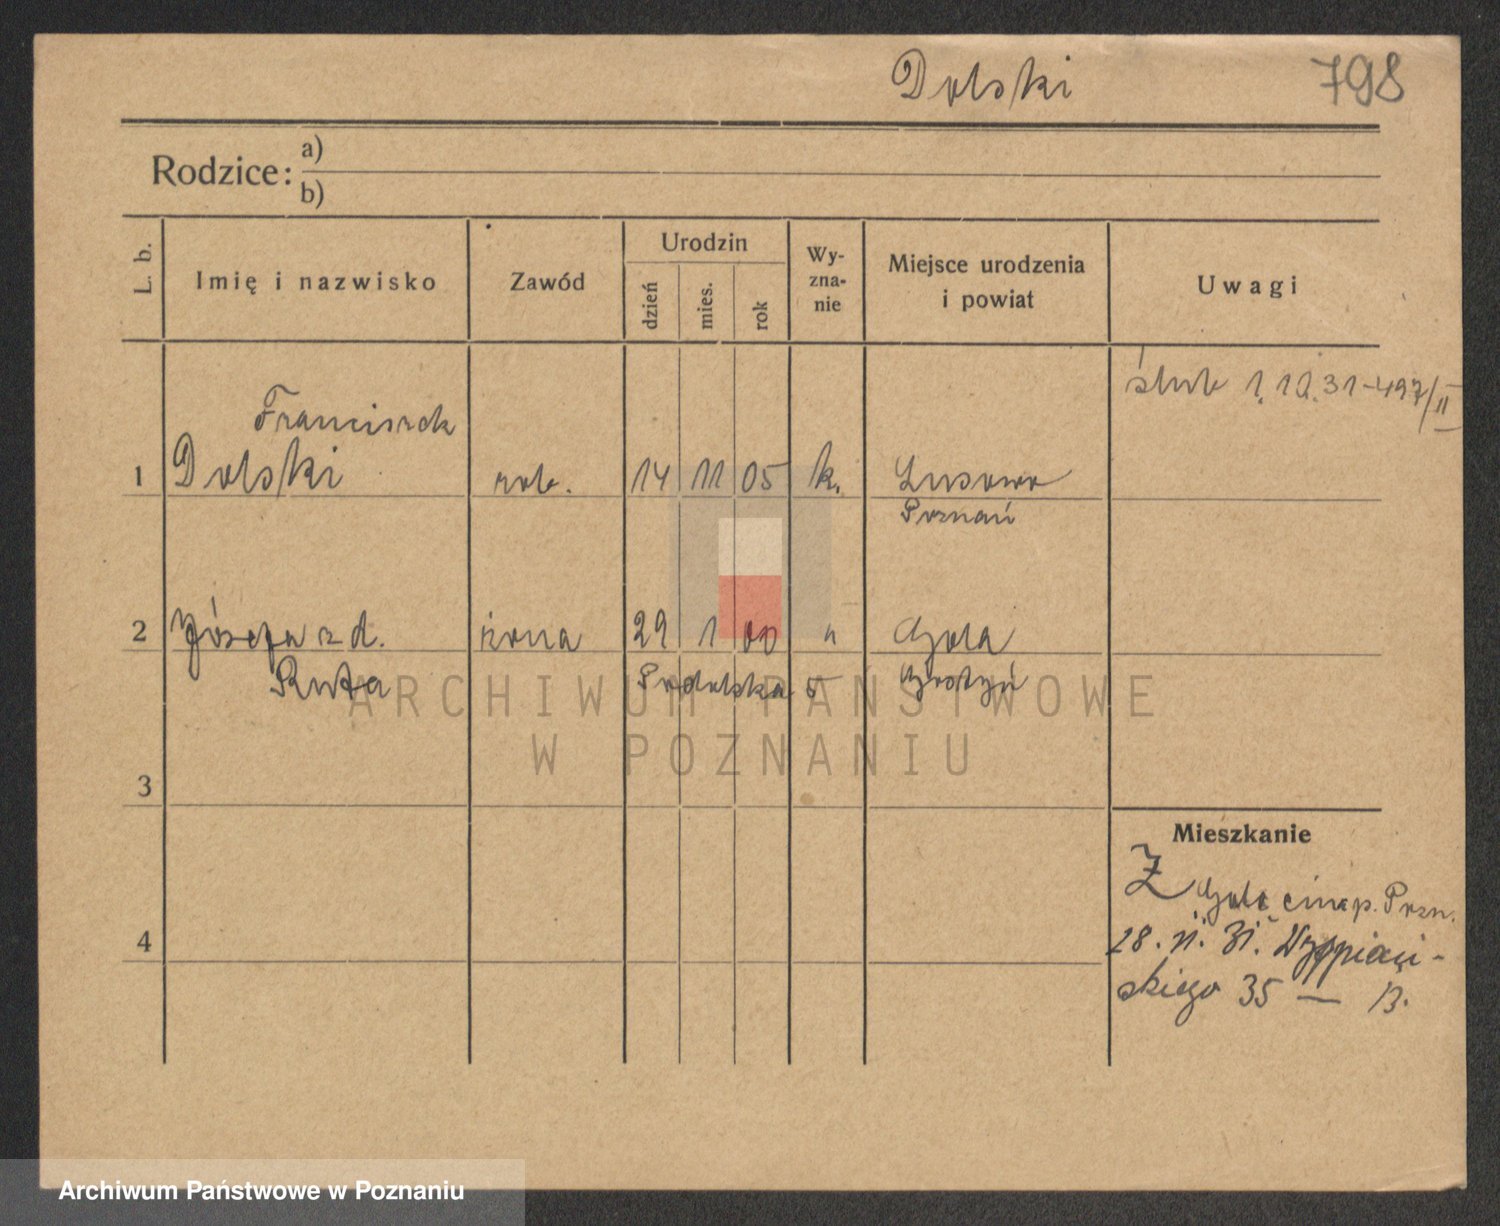 Dolski 798
Rodzice: a)
b)
L. b.
Imię i nazwisko
Zawód
Urodzin
dzień
mies.
rok
Wy-
zna-
nie
Miejsce urodzenia
i powiat
Uwagi
ślub 1.10.31-497/II
Franciszek
1 Dolski rob. 14 11 05 k. Lusowo
Poznań
2 Józefa z d. żona 29 1 00 " Gola
Ruta Podolska 5 Gostyń
ARCHIWUM PAŃSTWOWE
W POZNANIU
3
Mieszkanie
Z Pozn.
4
28. 31. Wyspiań-
skiego 35 — B.
Archiwum Państwowe w Poznaniu